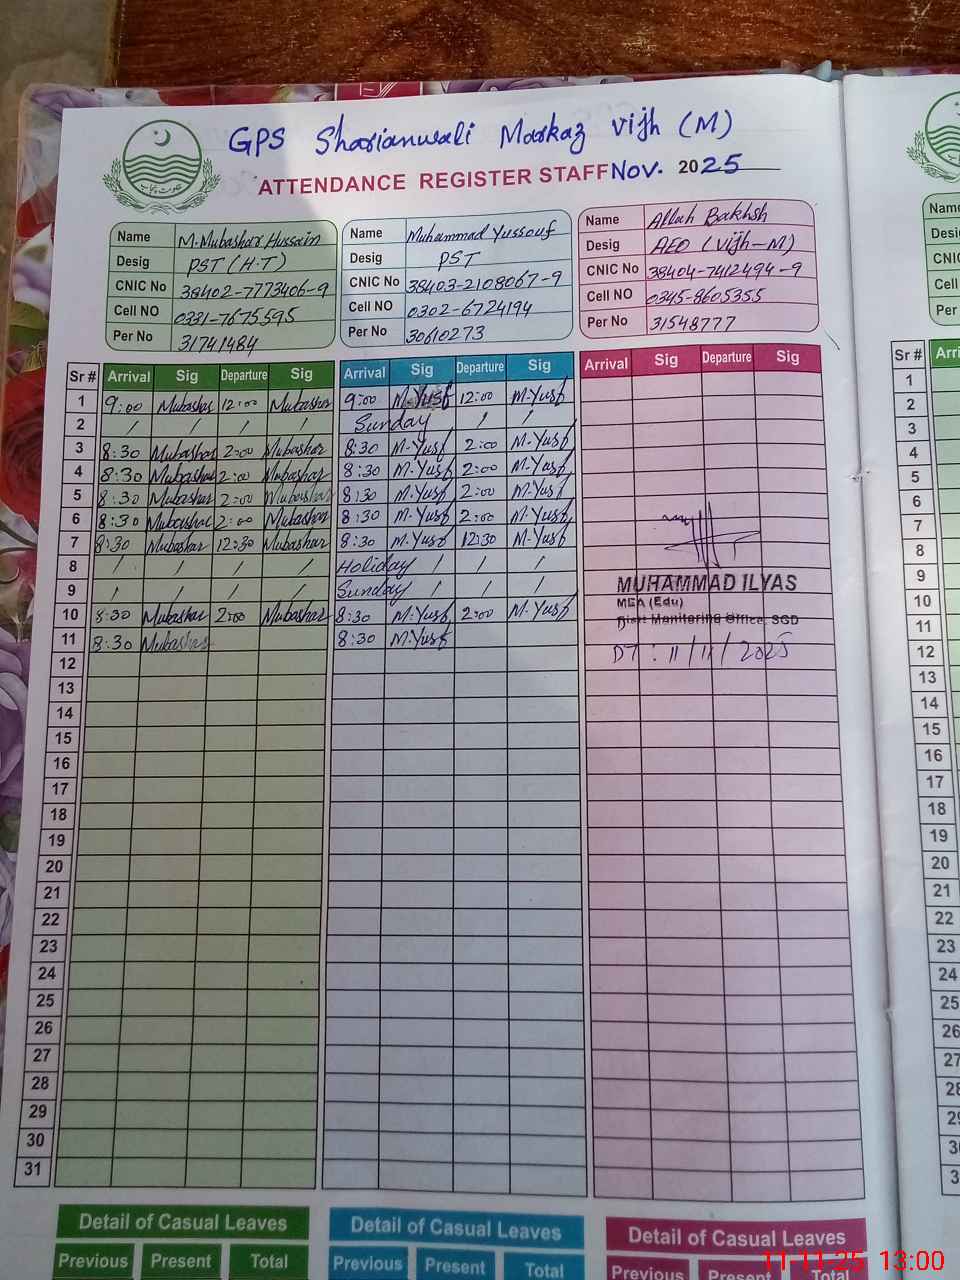 GPS Sharianwali Markaz Vijh (M)
ATTENDANCE REGISTER STAFF Nov. 2025
Name M.Mubashar Hussain
Desig PST (H.T)
CNIC No 38402-7773406-9
Cell NO 0331-7675595
Per No 31741484
Name Muhammad Yussouf
Desig PST
CNIC No 38403-2108067-9
Cell NO 0302-6724194
Per No 30610273
Name Allah Bakhsh
Desig AEO (Vijh-M)
CNIC No 38404-7412494-9
Cell NO 0345-8605355
Per No 31548777
Sr # Arrival Sig Departure Sig Arrival Sig Departure Sig Arrival Sig Departure Sig
1 9:00 Mubashar 12:00 Mubashar 9:00 M.Yusf 12:00 M.Yusf
2 / / / / Sunday / /
3 8:30 Mubashar 2:00 Mubashar 8:30 M.Yusf 2:00 M.Yusf
4 8:30 Mubashar 2:00 Mubashar 8:30 M.Yusf 2:00 M.Yusf
5 8:30 Mubashar 2:00 Mubashar 8:30 M.Yusf 2:00 M.Yusf
6 8:30 Mubashar 2:00 Mubashar 8:30 M.Yusf 2:00 M.Yusf
7 8:30 Mubashar 12:30 Mubashar 8:30 M.Yusf 12:30 M.Yusf
8 / / / / Holiday / /
9 / / / / Sunday / /
10 8:30 Mubashar 2:00 Mubashar 8:30 M.Yusf 2:00 M.Yusf
11 8:30 Mubashar 8:30 M.Yusf
MUHAMMAD ILYAS
MEA (Edu)
Distt Monitoring Office, SGD
DT: 11/11/2025
12
13
14
15
16
17
18
19
20
21
22
23
24
25
26
27
28
29
30
31
Detail of Casual Leaves Detail of Casual Leaves Detail of Casual Leaves
Previous Present Total Previous Present Total Previous Present Total
Name
Desig
CNIC
Cell
Per
Sr #
1
2
3
4
5
6
7
8
9
10
11
12
13
14
15
16
17
18
19
20
21
22
23
24
25
26
27
28
11-11-25 13:00